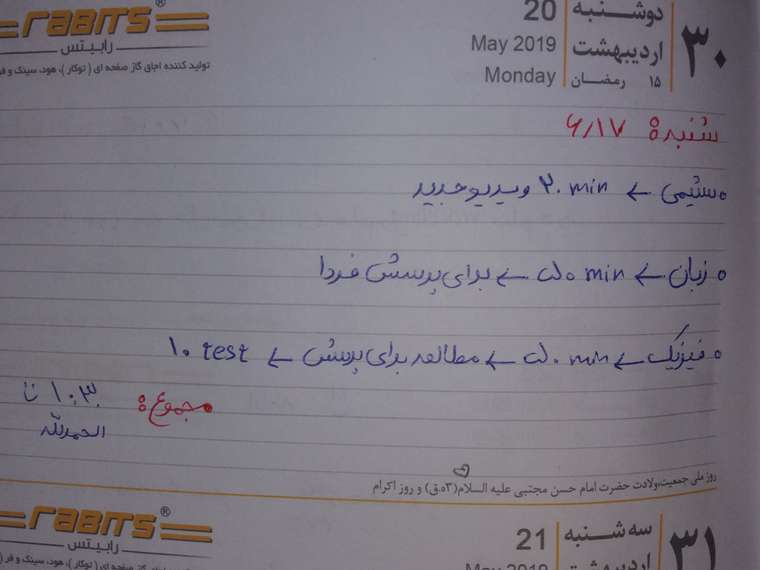 RABITS®
رابیتس
تولید کننده اجاق گاز صفحه ای ( توکار )، هود، سینک و فر
۳۰
دوشنبه
اردیبهشت
۱۵ رمضان
20
May 2019
Monday
شنبه: ۶/۱۷
• شیمی ← ۲۰ min ویدیو جدید
• زبان ← ۵۰ min ← برای پرسش فردا
• فیزیک ← ۵۰ min ← مطالعه برای پرسش ← ۱۰ test
مجموع: ۱۰:۳۰
الحمدلله
روز ملی جمعیت،ولادت حضرت امام حسن مجتبی علیه السلام(۳ه.ق) و روز اکرام
RABITS®
رابیتس
ای ( توکار )، هود، سینک و فر
۳۱
سه شنبه
اردیبهشت
21
May 2019